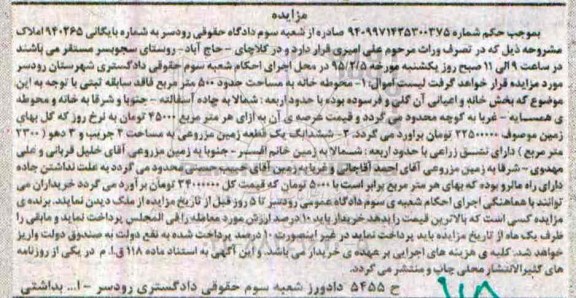 مزایده
بموجب حکم شماره ۹۴۰۹۹۷۱۴۳۵۳۰۰۳۷۵ صادره از شعبه سوم دادگاه حقوقی رودسر به شماره بایگانی ۹۴۰۲۶۵ املاک
مشروحه ذیل که در تصرف وراث مرحوم علی امیری قرار دارد و در کلاچای – حاج آباد – روستای سجوبسر مستقر می باشند
در ساعت ۹ الی ۱۱ صبح روز یکشنبه مورخه ۹۵/۲/۵ در محل اجرای احکام شعبه سوم حقوقی دادگستری شهرستان رودسر
مورد مزایده قرار خواهد گرفت لیست اموال: ۱– محوطه خانه به مساحت حدود ۵۰۰ متر مربع فاقد سابقه ثبتی با توجه به این
موضوع که بخش خانه و اعیانی آن گلین و فرسوده بوده با حدود اربعه: شمالا به جاده آسفالته – جنوبا و شرقا به خانه و محوطه
ی همسایه – غربا به کوچه محدود می گردد و قیمت عرصه ی آن به ازای هر متر مربع ۴۵۰۰۰ تومان به نرخ روز که کل بهای
زمین موصوف ۲۲۵۰۰۰۰۰ تومان براورد می گردد. ۲– ششدانگ یک قطعه زمین مزروعی به مساحت ۴ جریب و ۳ دهو (۲۳۰۰
متر مربع) دارای نسق زراعی با حدود اربعه: شمالا به زمین خانم افسر – جنوبا به زمین مزروعی آقای خلیل قربانی و علی
مهدوی – شرقا به زمین مزروعی آقای احمد آقاجانی و غربا به زمین آقای حمید حسنی محدود می گردد به علت نداشتن جاده
دارای راه مالرو بوده که بهای هر متر مربع برابر است با ۵۰۰۰ تومان که قیمت کل ۳۴۰۰۰۰۰۰ تومان برآورد می گردد خریداران می
توانند با هماهنگی اجرای احکام شعبه ی سوم دادگاه عمومی رودسر تا ۵ روز قبل از تاریخ مزایده از ملک دیدن نمایند. برنده ی
مزایده کسی است که بالاترین قیمت را بدهد خریدار باید ۱۰ درصد ارزش مورد معامله را فی المجلس پرداخت نماید و مابقی را
ظرف یک ماه از تاریخ مزایده باید پرداخت نماید در غیر اینصورت ۱۰ درصد پرداخت شده به نفع دولت به صندوق دولت واریز
خواهد شد. کلیه ی هزینه های اجرایی بر عهده ی خریدار می باشد. و این آگهی به استناد ماده ۱۱۸ ق.ا.م در یکی از روزنامه
های کثیرالانتشار محلی چاپ و منتشر می گردد.
ح ۵۴۵۵ دادورز شعبه سوم حقوقی دادگستری رودسر – ا... بداشتی